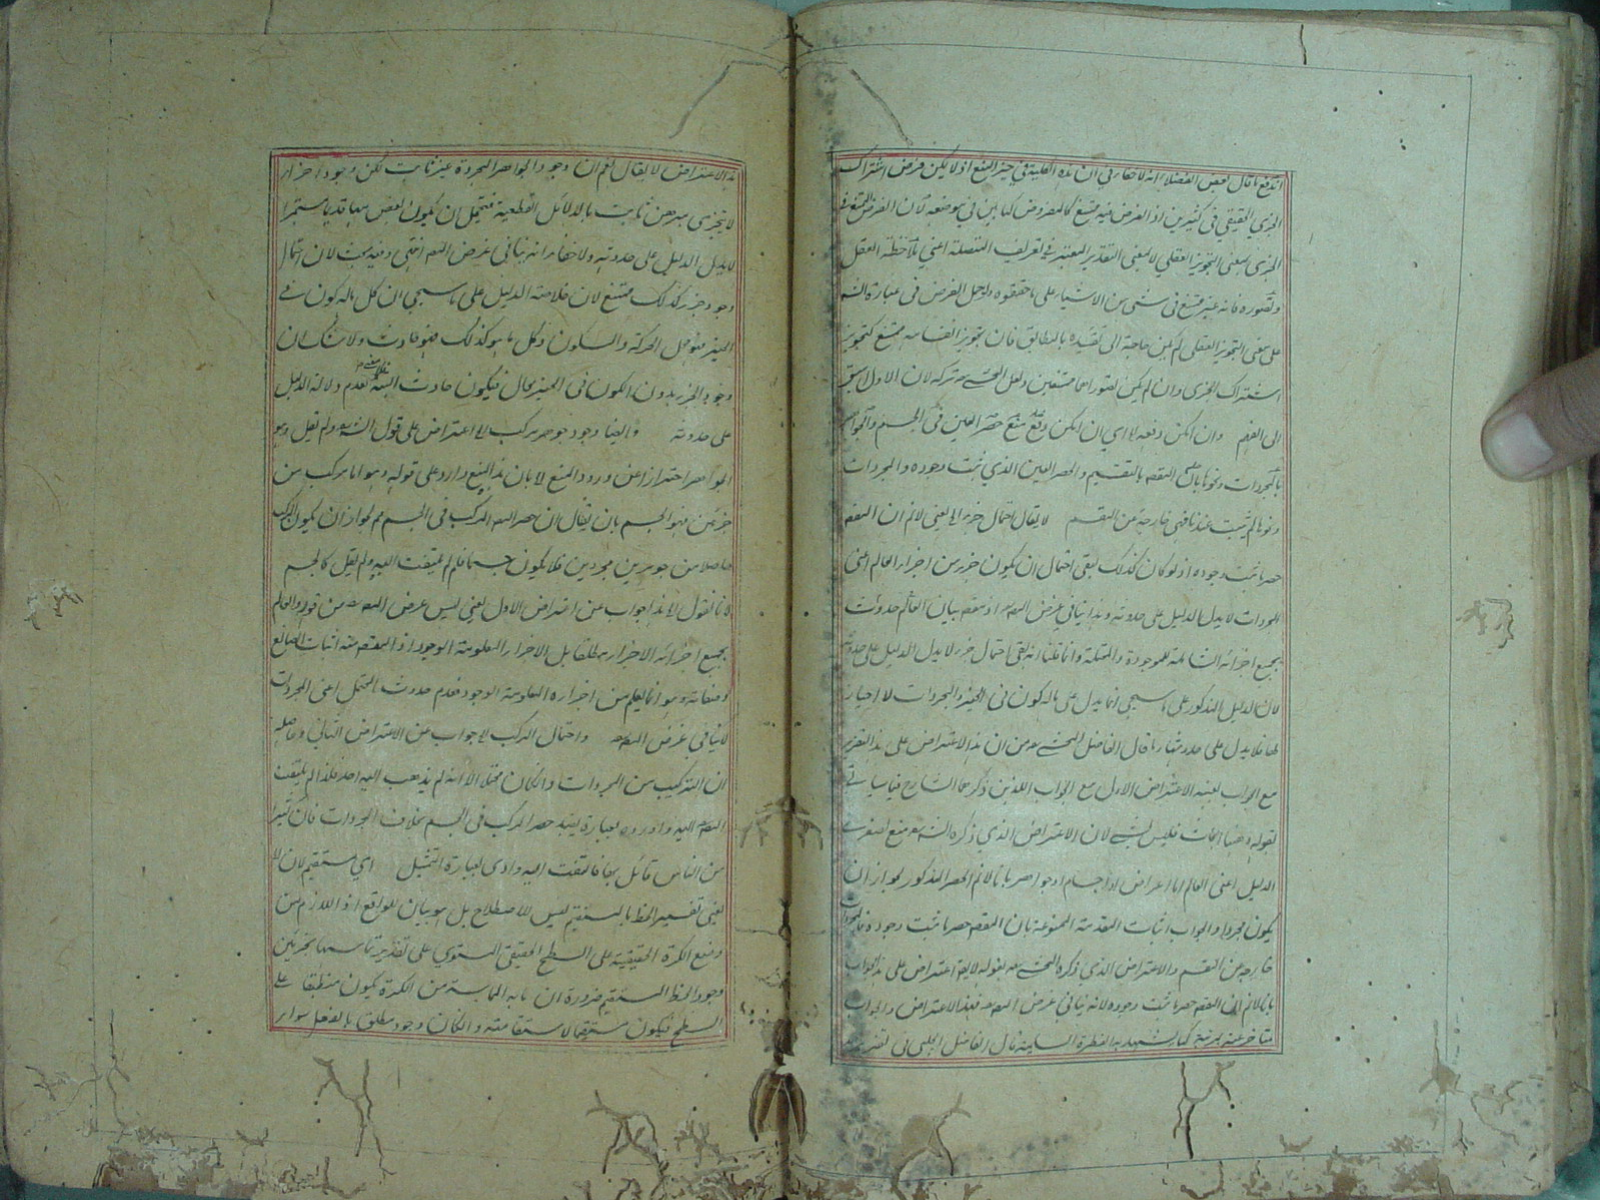 اندفع ما قال بعض الفضلاء انه لا خفاء في ان هذه الكلية في حيز المنع اذ لا يمكن فرض اشتراك
الجزئي الحقيقي في كثيرين اذ الفرض فيه ممتنع كالمفروض كما بين في موضعه لان الفرض الممتنع في
الجزئي بمعنى التجويز العقلي لا بمعنى التقدير المعتبر في تعريف المتصلة اعني ملاحظة العقل
وتصوره فانه غير ممتنع في شيء من الاشياء على ما حققوه ولو حمل الفرض في عبارة الشارح
على معنى التجويز العقلي لم يكن حاجة الى تقييده بالمطابق فان تجويز انقسامه ممتنع كتجويز
اشتراك الجزئي وان لم يكن تصورهما ممتنعين ولعل المحشي تركه لان الاول اسبق
الى الفهم وان امكن دفعه اي ان امكن دفع منع حصر العين في الجسم والجواهر
بالمجردات ونحوها بان المقصود بالتقسيم والحصر العين الذي ثبت وجوده والمجردات
ونحوها لم يثبت عندنا فهي خارجة من المقسم لا يقال احتمال جزء يعني لا نم ان المقسم
حصر ما ثبت وجوده اذ لو كان كذلك بقي احتمال ان يكون جزء من اجزاء العالم اعني
المجردات لا يدل الدليل على حدوثه وهذا ينافي غرض المص اذ مقصوده بيان العالم حدوث
بجميع اجزائه الشاملة للموجودة والممكنة وانما قلنا انه بقي احتمال جزء لا يدل الدليل على حدوثه
لان الدليل المذكور على ما سيجيء انما يدل على ما له كون في الحيز والمجردات لا احياز
لها فلا يدل على حدوثها قال الفاضل المحشي من ان هذا الاعتراض على هذا التقرير
مع الجواب بعينه الاعتراض الاول مع الجواب اللذين ذكرهما الشارح فيما سيأتي
بقوله وههنا ابحاث فليس بشيء لان الاعتراض الذي ذكره الشارح منع لصغرى
الدليل اعني العالم اما اعراض او اجسام او جواهر بانا لا نم الحصر المذكور لجواز ان
يكون مجردا والجواب اثبات المقدمة الممنوعة بان المقصود حصر ما ثبت وجوده والمجردات
خارجة من المقسم والاعتراض الذي ذكره المحشي بقوله لا يقال اعتراض على هذا الجواب
بانا لا نم ان المقصود حصر ما ثبت وجوده لانه ينافي غرض المص فهذا الاعتراض والجواب
متاخر عنه بمرتبة كما يشهد به الفطرة السليمة قال الفاضل الچلپي في تقرير
هذا الاعتراض لا يقال نعم ان وجود الجواهر المجردة غير ثابت لكن وجود اجزاء
لا يتجزى مبرهن ثابت بالدلائل القطعية فيحتمل ان يكون بعض منها قديما مستمرا
لا يدل الدليل على حدوثه ولا خفاء انه ينافي غرض المص انتهى وفيه بحث لان احتمال
وجود جزء كذلك ممتنع لان خلاصة الدليل على ما سيجيء ان كل ما له كون في
الحيز فهو محل الحركة والسكون وكل ما هو كذلك فهو حادث ولا شك ان
وجود الجزء بدون الكون في الحيز محال فيكون حادث البتة لعدم دلالة الدليل
على حدوثه وايضا وجود جوهر مركب اعتراض على قول الشارح ولم يقل وهو
الجوهر احترازا عن ورود المنع بان هذا المنع وارد على قوله وهو اما مركب من
جزئين وهو الجسم بان يقال ان حصر المص المركب في الجسم مم لجواز ان يكون المركب
حاصلا من جوهرين مجردين فلا يكون جسما فلم لم يلتفت اليه ولم يقل كالجسم
لانا نقول هذا جواب عن اعتراض الاول يعني ليس غرض المص من قوله والعالم
بجميع اجزائه الاجزاء مطلقا بل الاجزاء المعلومة الوجود اذ المقصود منه اثبات الصانع
وصفاته وهو انما يعلم من اجزائه المعلومة الوجود فعدم حدوث المحتمل اعني المجردات
لا ينافي غرض المص واحتمال المركب جواب عن الاعتراض الثاني وحاصله
ان التركيب من المجردات وان كان محتملا الا انه لم يذهب اليه احد فلذا لم يلتفت
المص اليه واورده بعبارة يفيد حصر المركب في الجسم بخلاف المجردات فان كثيرا
من الناس قائل بها فالتفت اليه وادى بعبارة التمثيل اي مستقيم لان
يعني تفسير الخط بالمستقيم ليس للاصطلاح بل هو بيان للواقع اذ اللازم من
وضع الكرة الحقيقية على السطح الحقيقي المستوي على تقدير تماسهما بجزئين
وجود الخط المستقيم ضرورة ان ما به المماسة من الكرة يكون منطبقا على
السطح فيكون مستقيما لاستقامته وان كان وجود مطلق بالفعل سواء